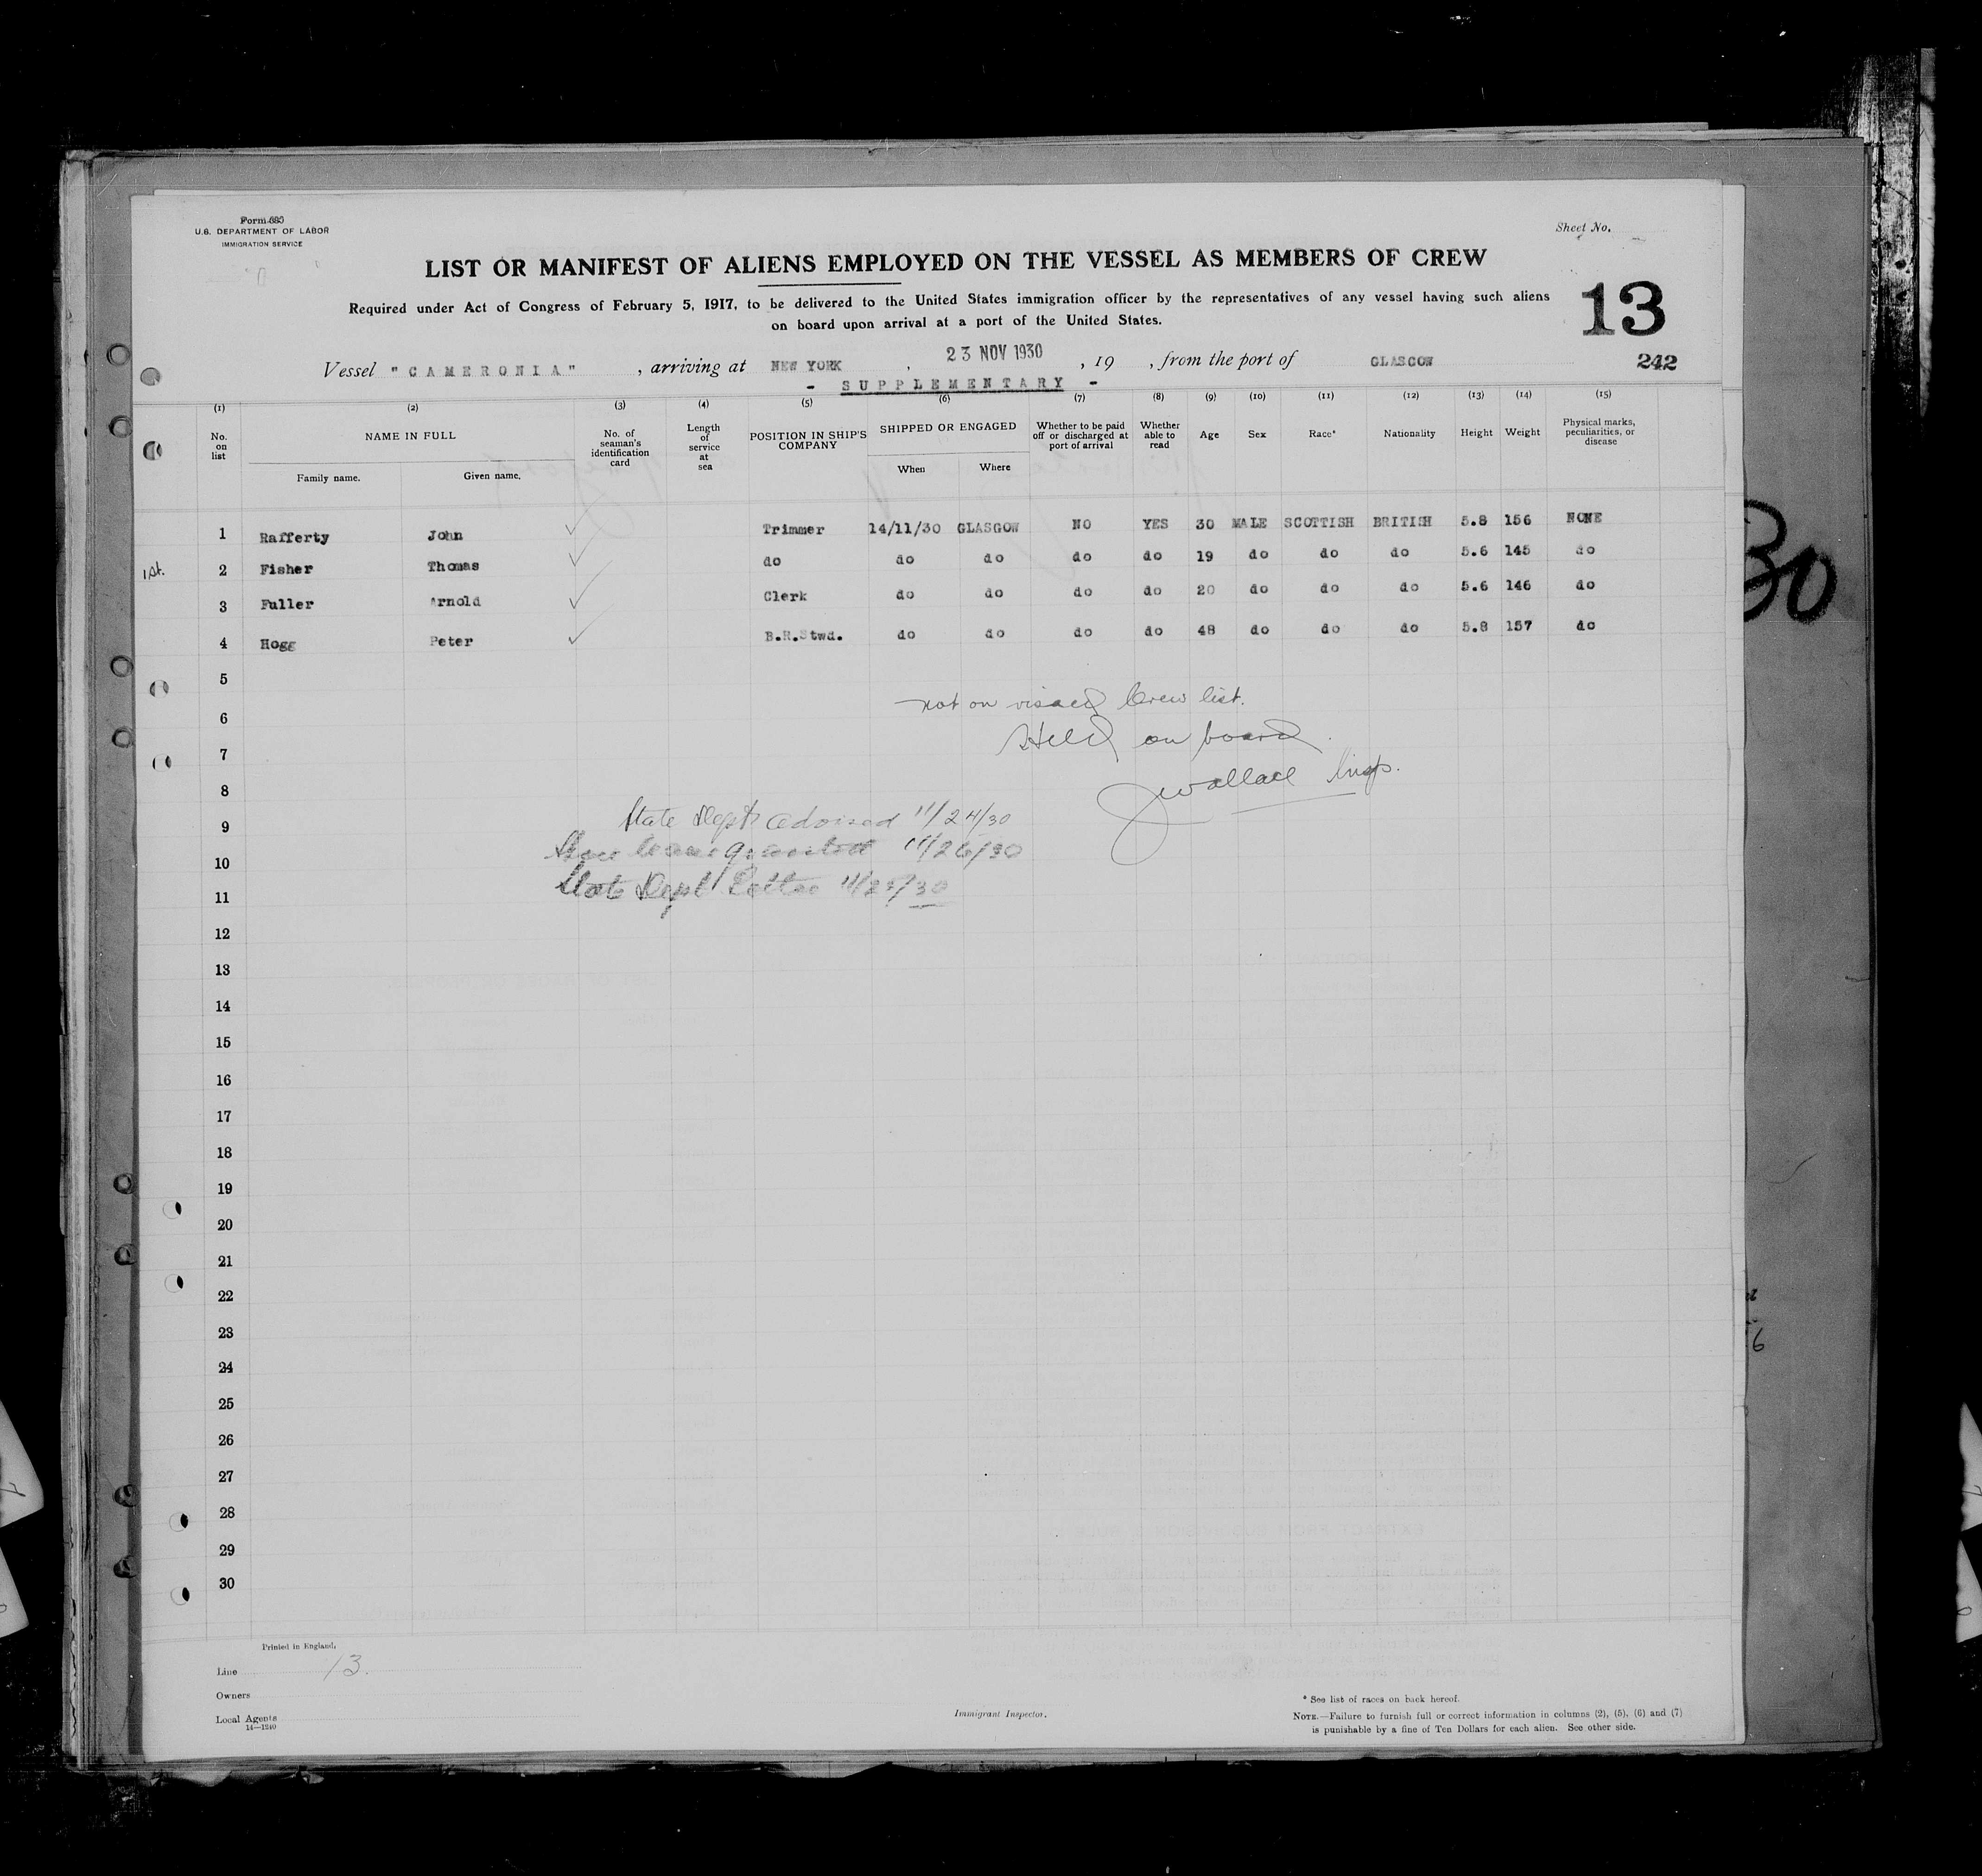 Form 680
U.S. DEPARTMENT OF LABOR
IMMIGRATION SERVICE
Sheet No.
LIST OR MANIFEST OF ALIENS EMPLOYED ON THE VESSEL AS MEMBERS OF CREW
Required under Act of Congress of February 5, 1917, to be delivered to the United States immigration officer by the representatives of any vessel having such aliens
on board upon arrival at a port of the United States.
13
Vessel "CAMERONIA", arriving at NEW YORK, 23 NOV 1930, 19, from the port of GLASGOW
242
- SUPPLEMENTARY -
(1) (2) (3) (4) (5) (6) (7) (8) (9) (10) (11) (12) (13) (14) (15)
No. on list NAME IN FULL No. of seaman's identification card Length of service at sea POSITION IN SHIP'S COMPANY SHIPPED OR ENGAGED Whether to be paid off or discharged at port of arrival Whether able to read Age Sex Race* Nationality Height Weight Physical marks, peculiarities, or disease
Family name. Given name. When Where
1 Rafferty John Trimmer 14/11/30 GLASGOW NO YES 30 MALE SCOTTISH BRITISH 5.8 156 NONE
1st. 2 Fisher Thomas do do do do do 19 do do do 5.6 145 do
3 Fuller Arnold Clerk do do do do 20 do do do 5.6 146 do
4 Hogg Peter B.R.Stwd. do do do do 48 do do do 5.8 157 do
5
not on visaed Crew list.
6
Held on board.
7
J Wallace Insp.
8
State Dept advised 11/24/30
9
Shore leave granted 11/26/30
10
State Dept Letter 11/25/30
11
12
13
14
15
16
17
18
19
20
21
22
23
24
25
26
27
28
29
30
Printed in England.
Line 13.
Owners
Local Agents
14—1240
Immigrant Inspector.
* See list of races on back hereof.
NOTE.—Failure to furnish full or correct information in columns (2), (5), (6) and (7)
is punishable by a fine of Ten Dollars for each alien. See other side.
30
6